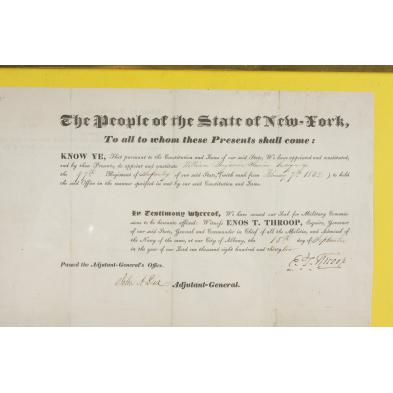 The People of the State of New-York,
To all to whom these Presents shall come:
KNOW YE, That pursuant to the Constitution and Laws of our said State, We have appointed and constituted,
and by these Presents, do appoint and constitute William
the 97th Regiment of Infantry of our said State, with rank from 7th 1832) to hold
the said Office in the manner specified in and by our said Constitution and Laws.
In Testimony whereof, We have caused our Seal for Military Commis-
sions to be hereunto affixed: Witness ENOS T. THROOP, Esquire, Governor
of our said State, General and Commander in Chief of all the Militia, and Admiral of
the Navy of the same, at our City of Albany, the 15th day of September
in the year of our Lord one thousand eight hundred and thirty two
E. T. Throop
Passed the Adjutant-General's Office.
John A. Dix Adjutant-General.